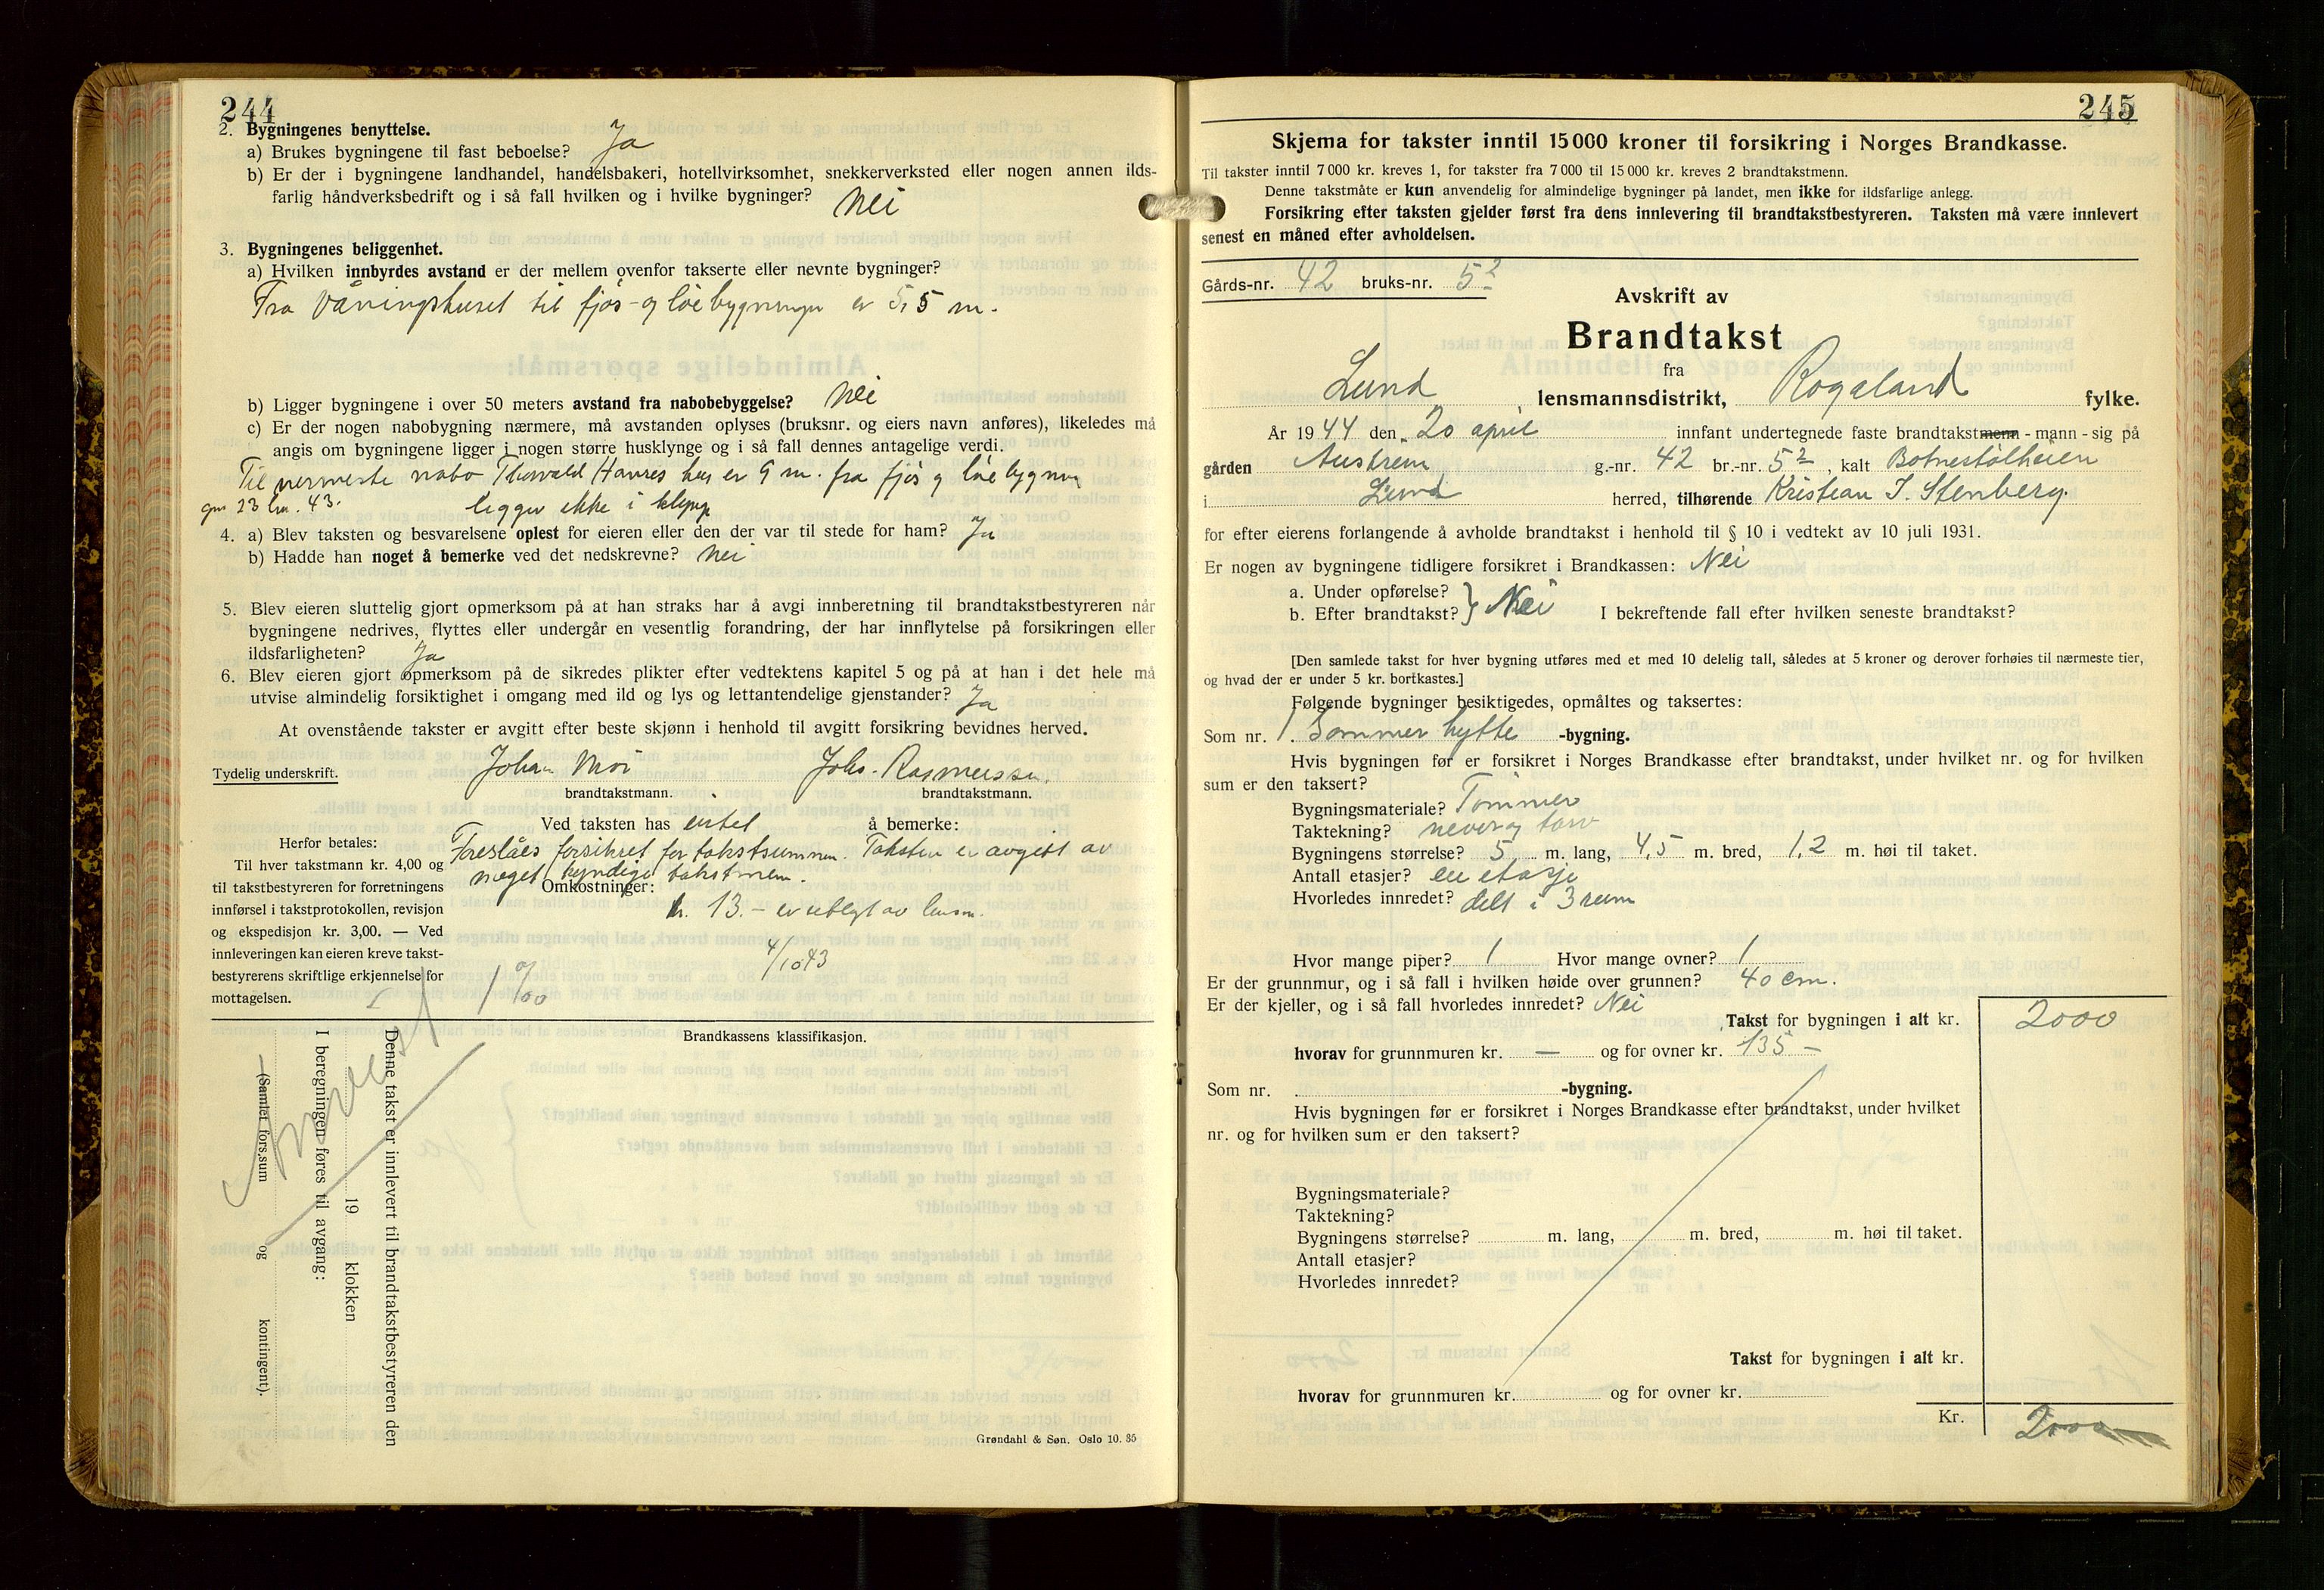 244
2. Bygningenes benyttelse.
a) Brukes bygningene til fast beboelse? Ja
b) Er der i bygningene landhandel, handelsbakeri, hotellvirksomhet, snekkerverksted eller nogen annen ilds-
farlig håndverksbedrift og i så fall hvilken og i hvilke bygninger? Nei
3. Bygningenes beliggenhet.
a) Hvilken innbyrdes avstand er der mellem ovenfor takserte eller nevnte bygninger?
Fra våningshuset til fjøs- og løebygningen er 5,5 m.
b) Ligger bygningene i over 50 meters avstand fra nabobebyggelse? Nei
c) Er der nogen nabobygning nærmere, må avstanden oplyses (bruksnr. og eiers navn anføres), likeledes må
angis om bygningene ligger i nogen større husklynge og i så fall dennes antagelige verdi.
Til nermeste nabo Thorvald Hanres hus er 9 m. fra fjøs og løebygning
gnr 23 bnr. 43. ligger ikke i klynge
4. a) Blev taksten og besvarelsene oplest for eieren eller den der var til stede for ham? Ja
b) Hadde han noget å bemerke ved det nedskrevne? Nei
5. Blev eieren sluttelig gjort opmerksom på at han straks har å avgi innberetning til brandtakstbestyreren når
bygningene nedrives, flyttes eller undergår en vesentlig forandring, der har innflytelse på forsikringen eller
ildsfarligheten? Ja
6. Blev eieren gjort opmerksom på de sikredes plikter efter vedtektens kapitel 5 og på at han i det hele må
utvise almindelig forsiktighet i omgang med ild og lys og lettantendelige gjenstander? Ja
At ovenstående takster er avgitt efter beste skjønn i henhold til avgitt forsikring bevidnes herved.
Tydelig underskrift. Johan Moi Johs. Rasmussen.
brandtakstmann. brandtakstmann.
Ved taksten has intet å bemerke:
Foreslåes forsikret for takstsummen. Taksten er avgitt av
meget kyndige takstmenn.
Omkostninger:
kr. 13.- er utlagt av lensm.
4/10 43
Herfor betales:
Til hver takstmann kr. 4,00 og
til takstbestyreren for forretningens
innførsel i takstprotokollen, revisjon
og ekspedisjon kr. 3,00. — Ved
innleveringen kan eieren kreve takst-
bestyrerens skriftlige erkjennelse for
mottagelsen.
1 0/00
Brandkassens klassifikasjon.
Denne takst er innlevert til brandtakstbestyreren den
19 klokken
I beregningen føres til avgang:
(Samlet fors.sum og kontingent).
Grøndahl & Søn. Oslo 10. 35
245
Skjema for takster inntil 15 000 kroner til forsikring i Norges Brandkasse.
Til takster inntil 7 000 kr. kreves 1, for takster fra 7 000 til 15 000 kr. kreves 2 brandtakstmenn.
Denne takstmåte er kun anvendelig for almindelige bygninger på landet, men ikke for ildsfarlige anlegg.
Forsikring efter taksten gjelder først fra dens innlevering til brandtakstbestyreren. Taksten må være innlevert
senest en måned efter avholdelsen.
Gårds-nr. 42 bruks-nr. 5²
Avskrift av
Brandtakst
fra
Lund lensmannsdistrikt, Rogaland fylke.
År 1944 den 20 april innfant undertegnede faste brandtakstmenn - mann - sig på
gården Austrem g.-nr. 42 br.-nr. 5², kalt Botnestølheien
i Lund herred, tilhørende Kristian I. Stenberg.
for efter eierens forlangende å avholde brandtakst i henhold til § 10 i vedtekt av 10 juli 1931.
Er nogen av bygningene tidligere forsikret i Brandkassen: Nei
a. Under opførelse?
b. Efter brandtakst? } Nei I bekreftende fall efter hvilken seneste brandtakst?
[Den samlede takst for hver bygning utføres med et med 10 delelig tall, således at 5 kroner og derover forhøies til nærmeste tier,
og hvad der er under 5 kr. bortkastes.]
Følgende bygninger besiktigedes, opmåltes og taksertes:
Som nr. 1 Sommer hytte -bygning.
Hvis bygningen før er forsikret i Norges Brandkasse efter brandtakst, under hvilket nr. og for hvilken
sum er den taksert?
Bygningsmateriale? Tømmer
Taktekning? never og torv
Bygningens størrelse? 5 m. lang, 4,5 m. bred, 1,2 m. høi til taket.
Antall etasjer? en etasje
Hvorledes innredet? delt i 3 rum
Hvor mange piper? 1 Hvor mange ovner? 1
Er der grunnmur, og i så fall i hvilken høide over grunnen? 40 cm.
Er der kjeller, og i så fall hvorledes innredet? Nei
Takst for bygningen i alt kr. 2000
hvorav for grunnmuren kr. — og for ovner kr. 135 —
Som nr. -bygning.
Hvis bygningen før er forsikret i Norges Brandkasse efter brandtakst, under hvilket
nr. og for hvilken sum er den taksert?
Bygningsmateriale?
Taktekning?
Bygningens størrelse? m. lang, m. bred, m. høi til taket.
Antall etasjer?
Hvorledes innredet?
Takst for bygningen i alt kr.
hvorav for grunnmuren kr. og for ovner kr.
Kr. 2000